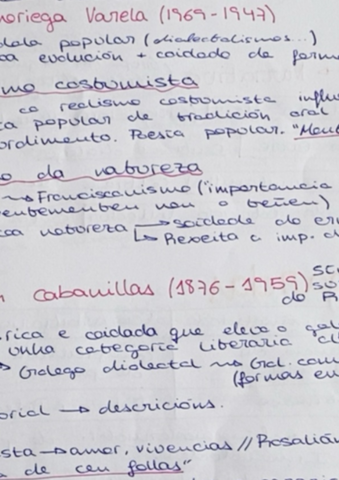 noriega Varela (1969-1947)
popular (dialectalismos...)
evolución + coidado da forma
mo costumista
co realismo costumista influ
popular de tradición oral
ordimento. Poesía popular. "Mont
da natureza
→ Franciscanismo ("importancia
non o teñen)
natureza → soidade do er
↳ Rexeita a imp. d
Cabanillas (1876-1959)
do
rica e coidada que eleva o gal
unha categoría literaria
Galego dialectal → Gal. com
(formas eu
orial → descricións.
sta → amor, vivencias // Rosalián
de cen follas"